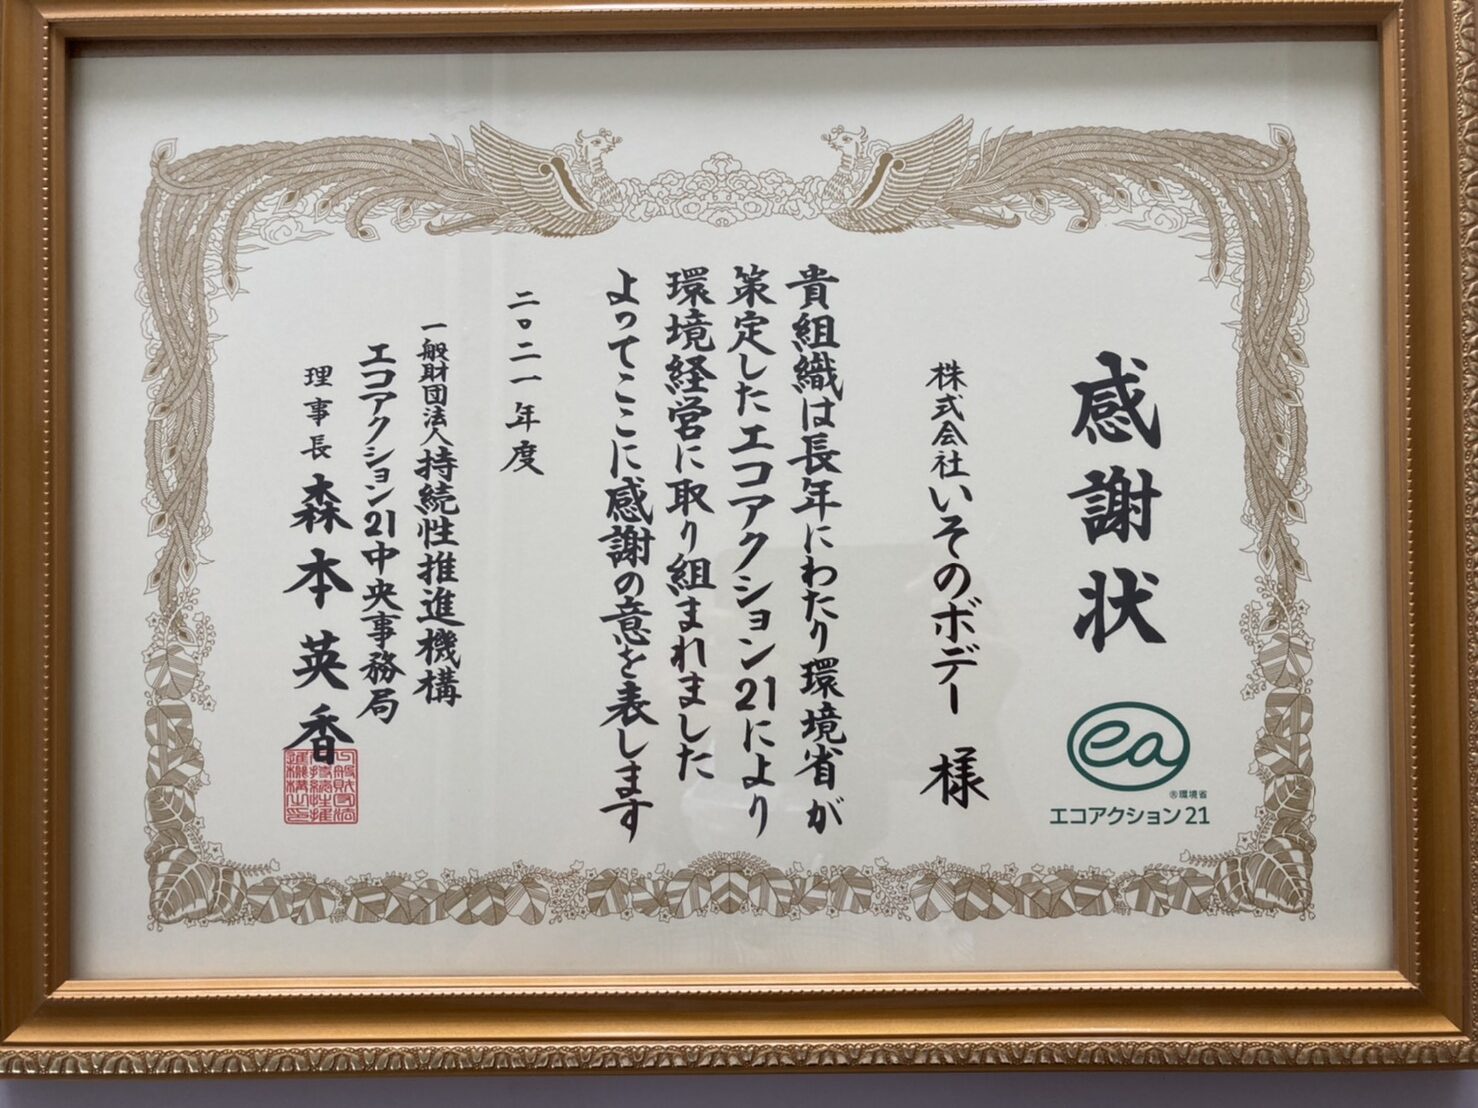 感謝状
ea
®環境省
エコアクション21
株式会社いそのボデー 様
貴組織は長年にわたり環境省が
策定したエコアクション21により
環境経営に取り組まれました
よってここに感謝の意を表します
二〇二一年度
一般財団法人持続性推進機構
エコアクション21中央事務局
理事長 森本英香